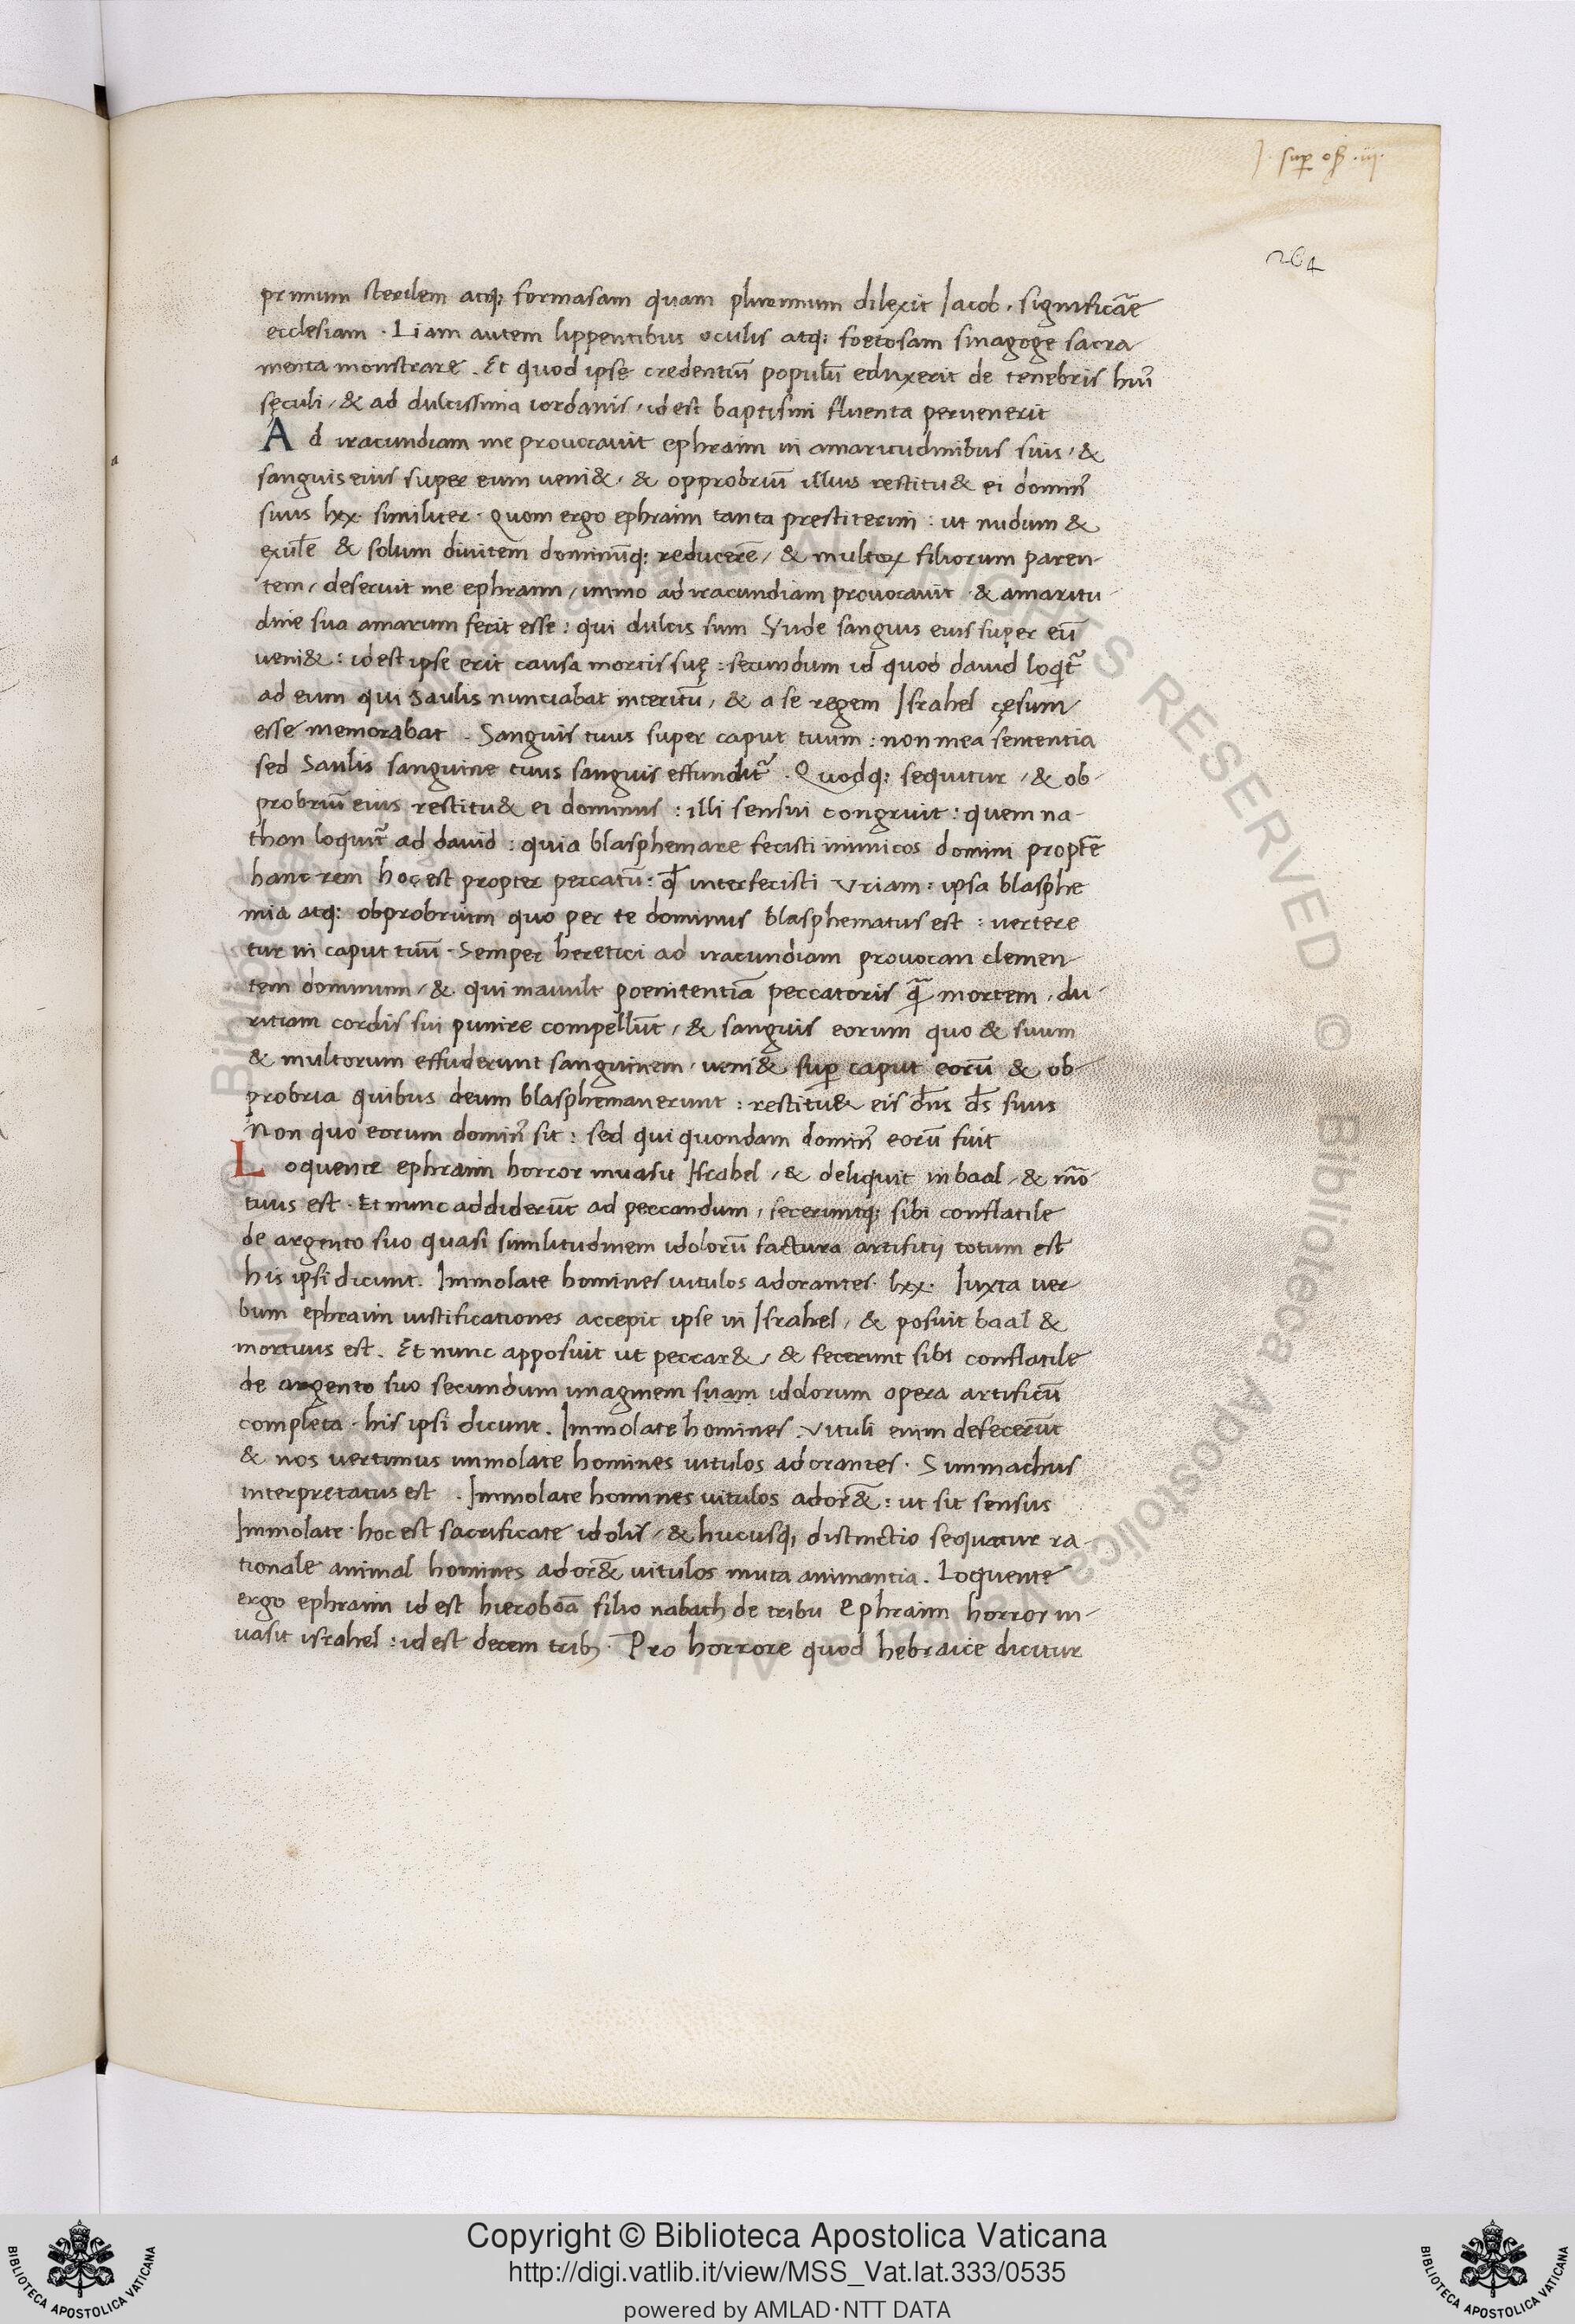 J. sup os .iij.
264
primum sterilem atq; formasam quam plurimum dilexit Iacob, significãe
ecclesiam . Liam autem lippentibus oculis atq; foetosam sinagoge sacra
menta monstrare . Et quod ipse credentiũ populũ eduxerit de tenebris huiꝰ
sęculi, & ad dulcissima iordanis, id est baptismi fluenta pervenerit
Ad iracundiam me provocavit ephraim in amaritudinibus suis, &
sanguis eius super eum veni&, & opprobriũ illius restitu& ei dominꝰ
suus lxx. similiter. Quom ergo ephraim tanta prestiterim : ut nudum &
exulẽ & solum divitem dominũq; reducerẽ, & multoꝝ filiorum paren-
tem, deseruit me ephraim, immo ad iracundiam provocavit & amaritu-
dine sua amarum fecit esse : qui dulcis sum Unde sanguis eius super eũ
veni& : id est ipse erit causa mortis suę : secundum id quod david loqͥt᷑
ad eum qui Saulis nunciabat interitũ, & a se regem Israhel cęsum
esse memorabat . Sanguis tuus super caput tuum : non mea sententia
sed Saulis sanguine tuus sanguis effundit᷑ . Quodq; sequitur, & ob-
probriũ eius restitu& ei dominus : illi sensui congruit : quem na-
than loquit᷑ ad david : quia blasphemare fecisti inimicos domini proptẽ
hanc rem hoc est propter peccatũ : ꝙ interfecisti Uriam : ipsa blasphe
mia atq; obprobrium quo per te dominus blasphematus est : vertere
tur in caput tuũ . Semper heretici ad iracundiam provocan clemen-
tem dominum, & qui mavult poenitentiã peccatoris qͣ̃ mortem, du-
ritiam cordis sui punire compellũt, & sanguis eorum quo & suum
& multorum effuderunt sanguinem, veni& suꝑ caput eorũ & ob-
probria quibus deum blasphemaverunt : restitu& eis dñs ds̃ suus
Non quo eorum dominꝰ sit : sed qui quondam dominꝰ eorũ fuit
Loquente ephraim horror invasit Israhel, & deliquit in baal, & mõ
tuus est . Et nunc addiderũt ad peccandum, feceruntq; sibi conflatile
de argento suo quasi similitudinem idolorũ factura artifitij totum est
his ipsi dicunt. Immolate homines vitulos adorantes. lxx. Iuxta ver
bum ephraim iustificationes accepit ipse in Israhel, & posuit baal &
mortuus est. Et nunc apposuit ut peccar&, & fecerunt sibi conflatile
de argento suo secundum imaginem suam idolorum opera artificũ
completa. his ipsi dicunt. Immolate homines. Vituli enim defecerũt
& nos vertimus immolate homines vitulos adorantes. Simmachus
interpretatus est . Immolate homines vitulos ador&̃ : ut sit sensus
Immolate hoc est sacrificate idolis, & hucusq; distinctio sequatur ra-
tionale animal homines ador&̃ vitulos muta animantia. Loquente
ergo ephraim id est hieroboã filio nabath de tribu Ephraim horror in-
vasit israhel : id est decem tribꝫ. Pro horrore quod hebraice dicitur
Copyright © Biblioteca Apostolica Vaticana
http://digi.vatlib.it/view/MSS_Vat.lat.333/0535
powered by AMLAD·NTT DATA
BIBLIOTECA APOSTOLICA VATICANA
BIBLIOTECA APOSTOLICA VATICANA